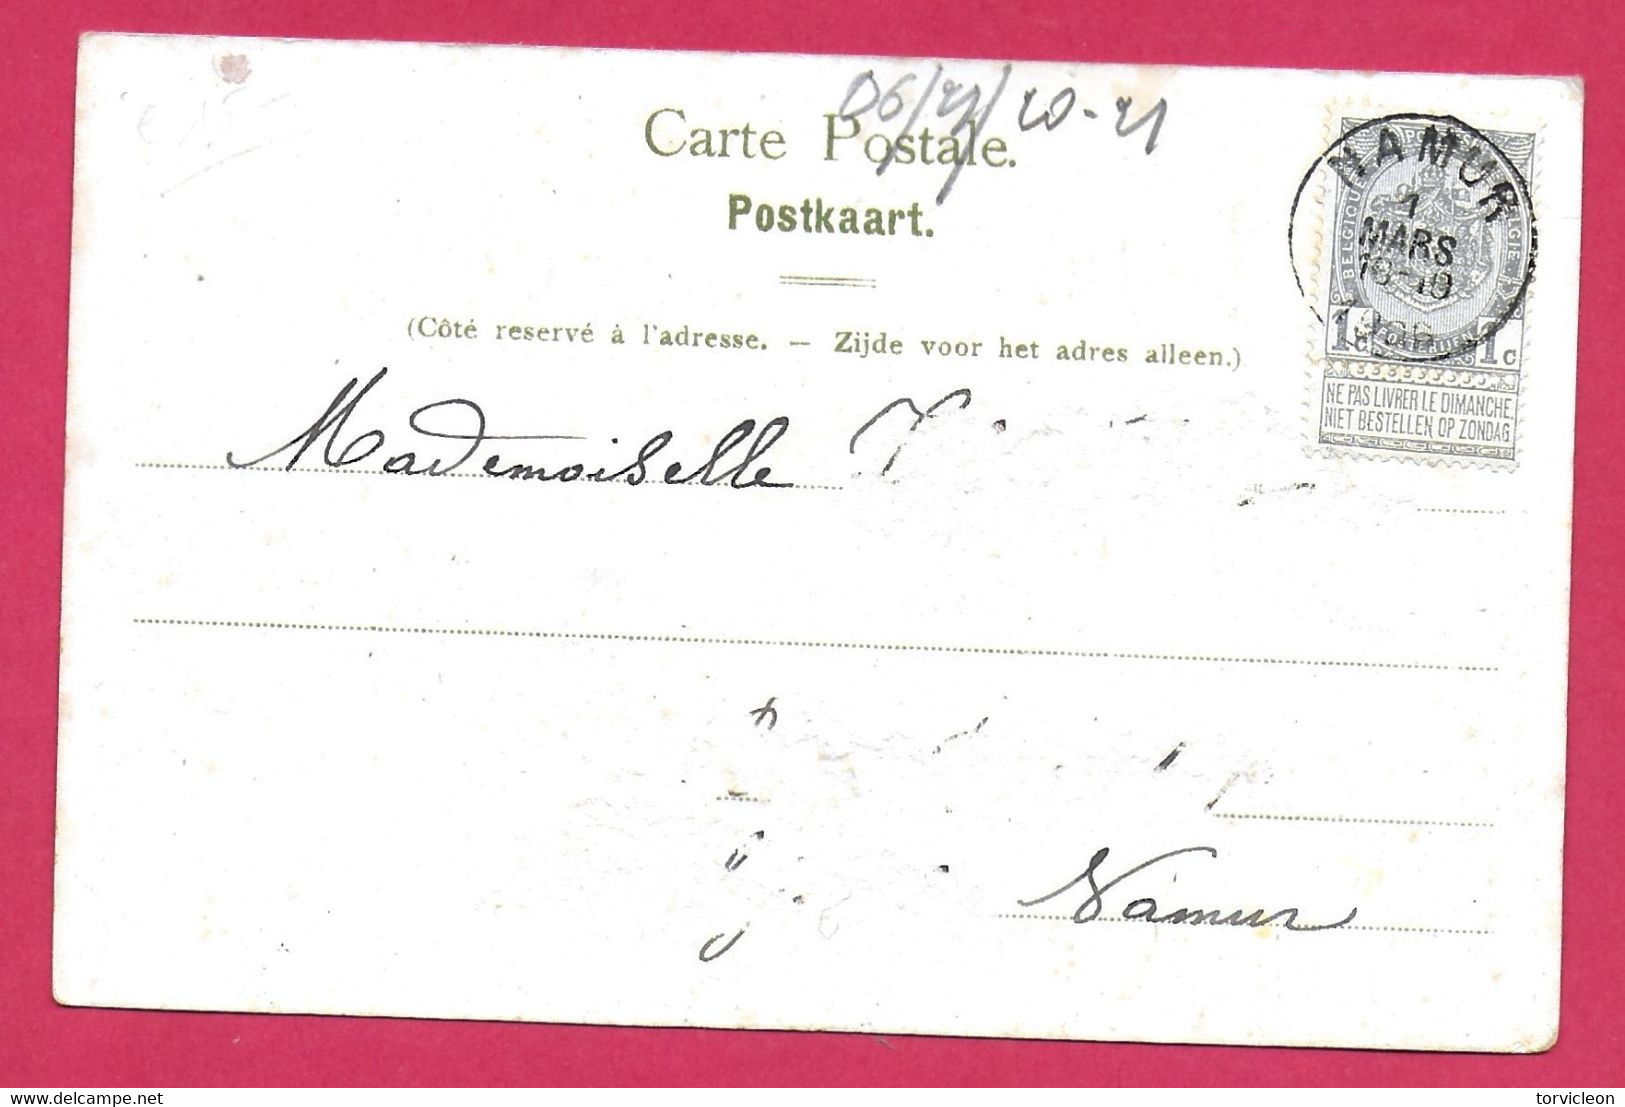 Carte Postale.
Postkaart.
(Côté reservé à l'adresse. — Zijde voor het adres alleen.)
NAMUR
1
MARS
BELGIQUE
1c 1c
NE PAS LIVRER LE DIMANCHE
NIET BESTELLEN OP ZONDAG
Mademoiselle
Namur
www.delcampe.net
torvicleon